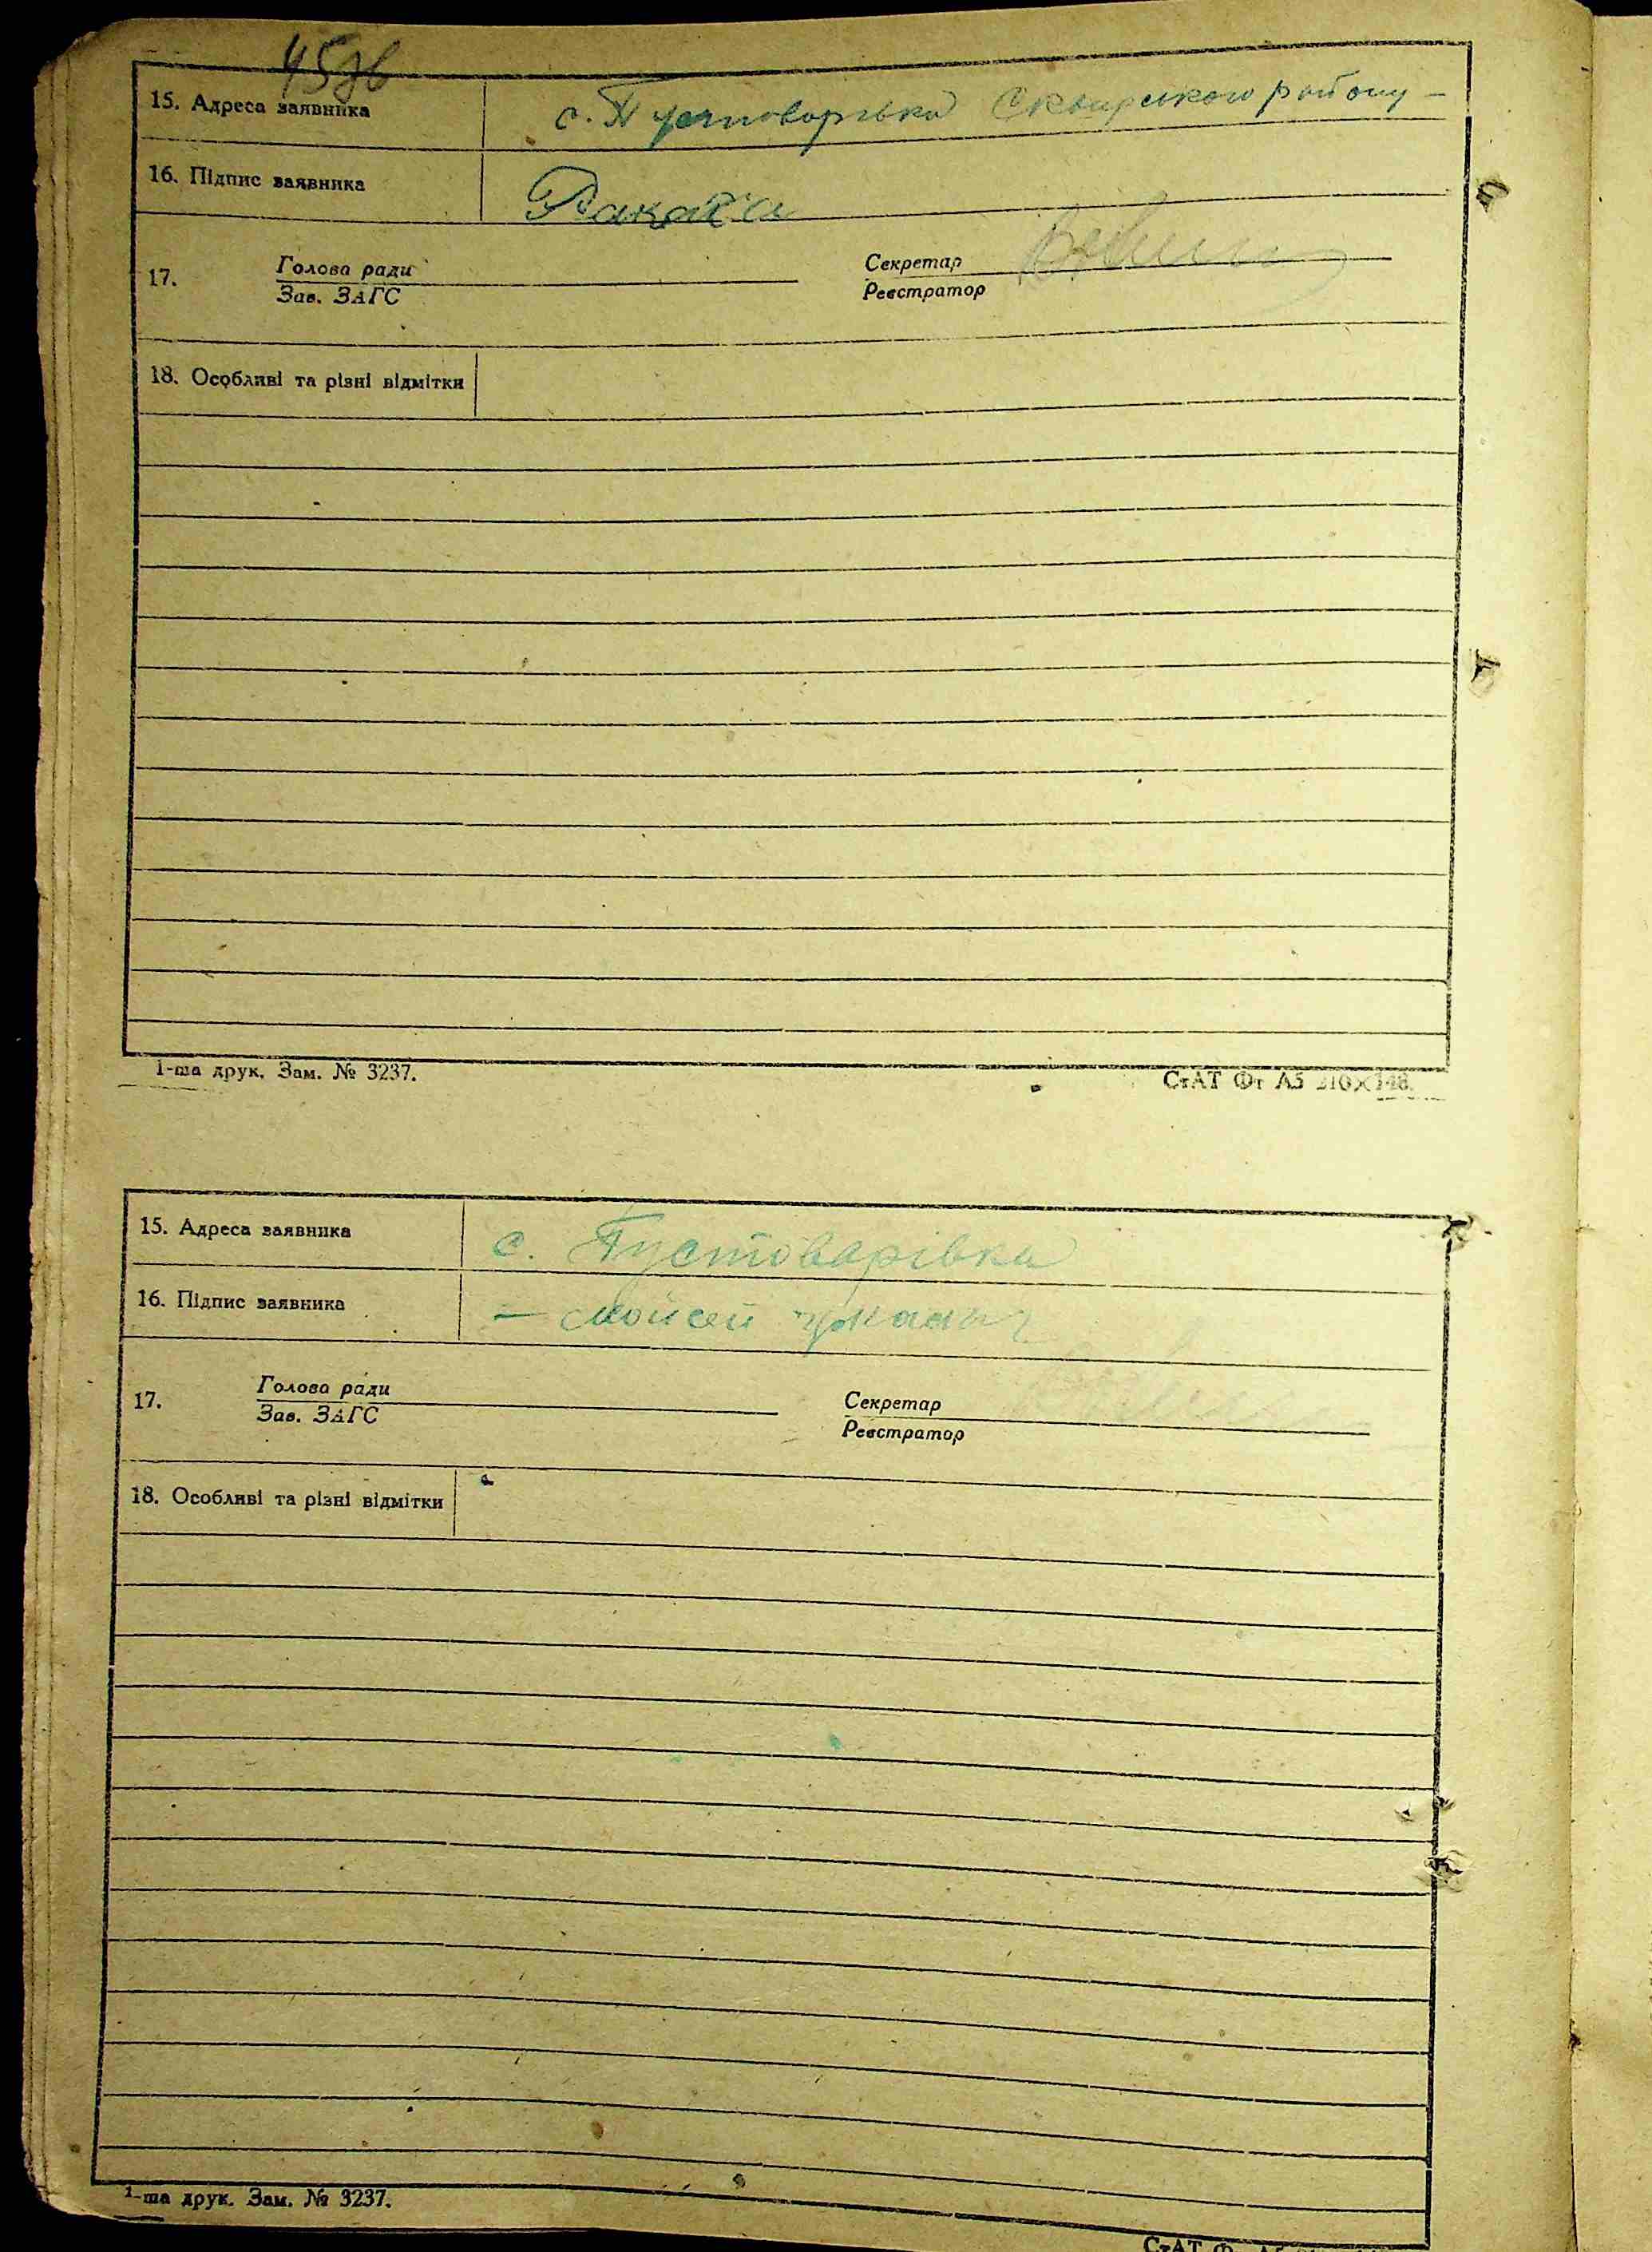 45зв
15. Адреса заявника с. Пустоварівка Сквирського району –
16. Підпис заявника Ракета
17. Голова ради Секретар
Зав. ЗАГС Реєстратор
18. Особливі та різні відмітки
1-ша друк. Зам. № 3237. СтАТ Фт А5 210×148.
15. Адреса заявника с. Пустоварівка
16. Підпис заявника – Мойсей
17. Голова ради Секретар
Зав. ЗАГС Реєстратор
18. Особливі та різні відмітки
1-ша друк. Зам. № 3237.
СтАТ Фт А5